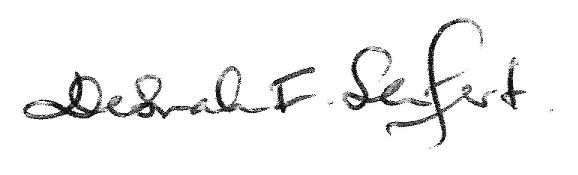 Deborah F. Seifert.